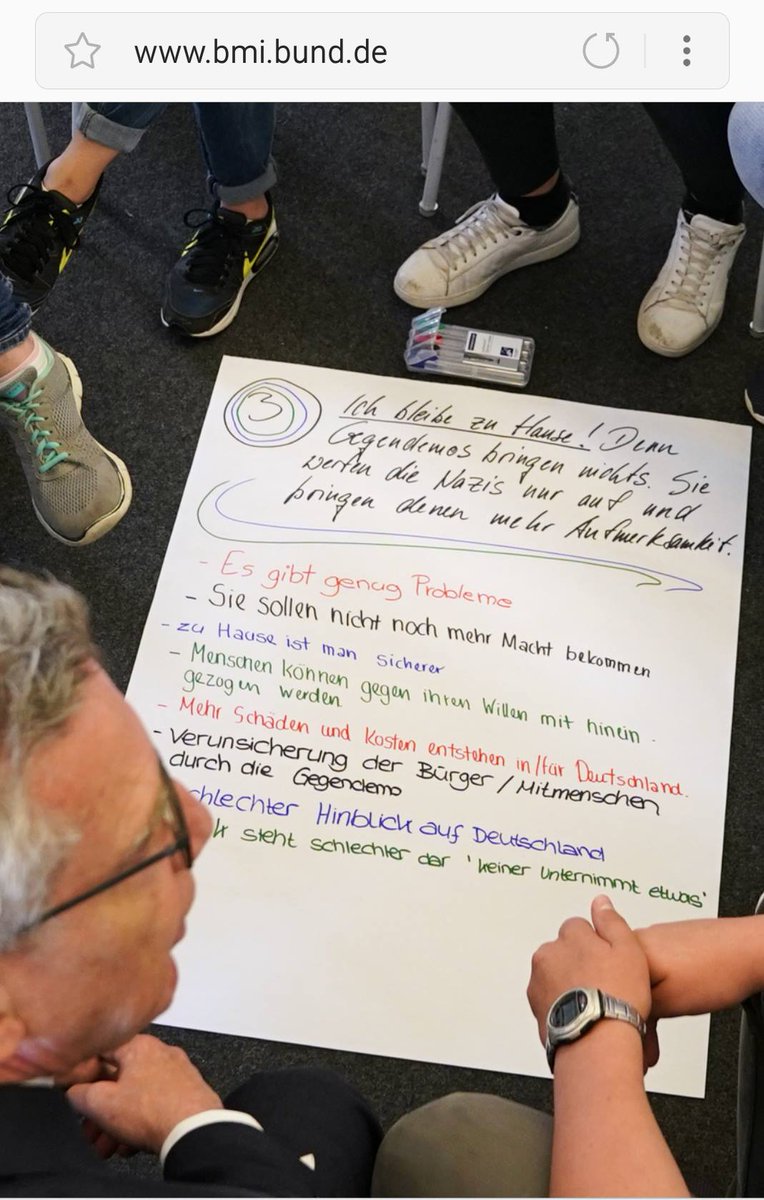 www.bmi.bund.de
3
Ich bleibe zu Hause! Denn
Gegendemos bringen nichts. Sie
werten die Nazis nur auf und
bringen denen mehr Aufmerksamkeit.
- Es gibt genug Probleme
- Sie sollen nicht noch mehr Macht bekommen
- zu Hause ist man sicherer
- Menschen können gegen ihren Willen mit hinein
gezogen werden
- Mehr Schäden und Kosten entstehen in/für Deutschland.
- Verunsicherung der Bürger / Mitmenschen
durch die Gegendemo
chlechter Hinblick auf Deutschland
steht schlechter dar 'keiner unternimmt etwas'